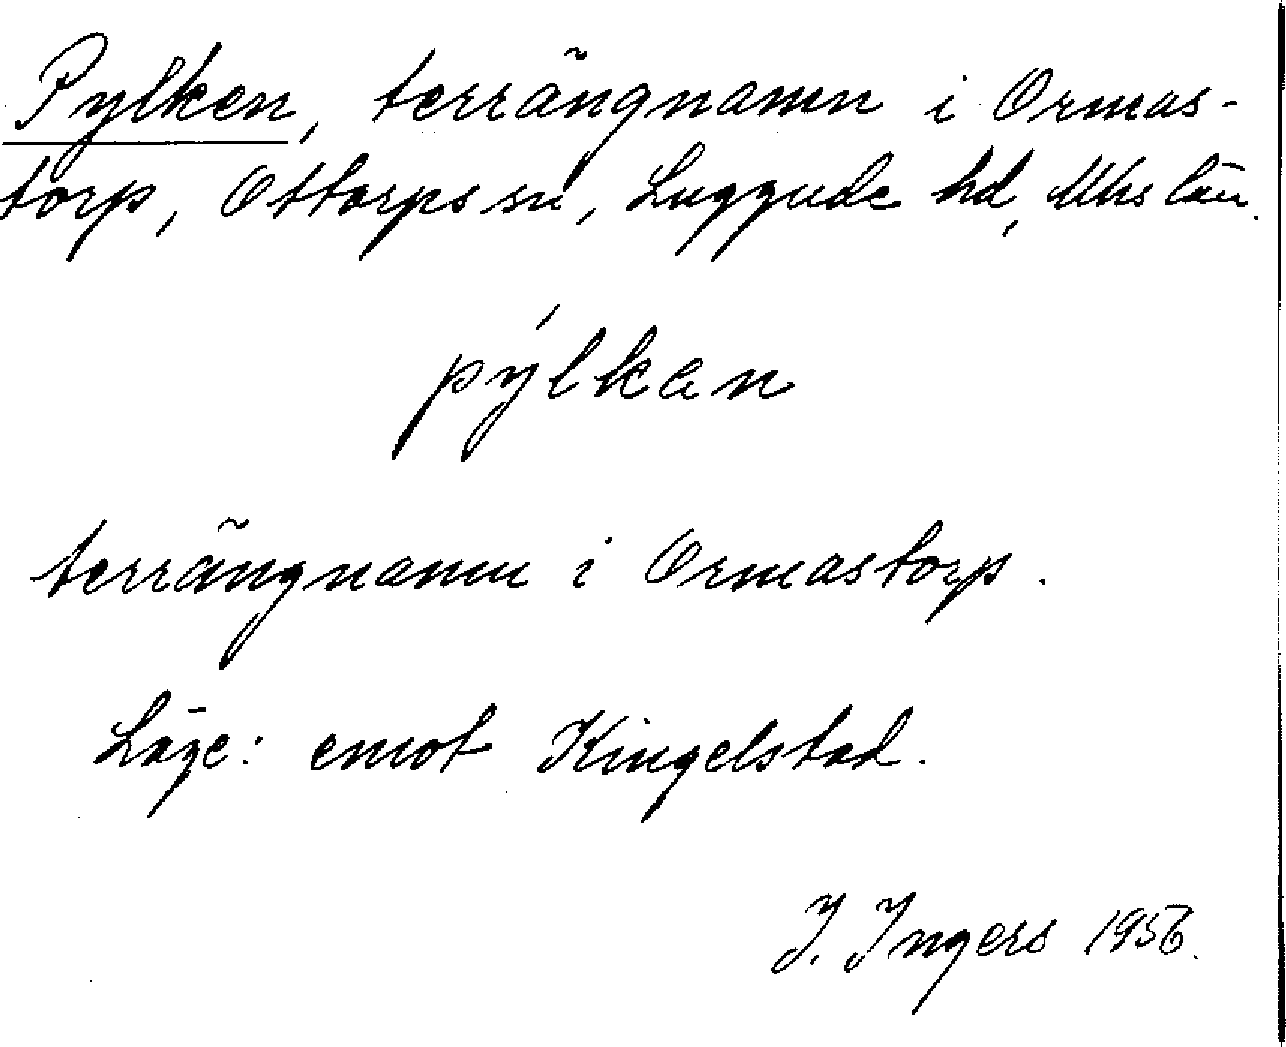 Pylken, terrängnamn i Ormas-
torp, Ottarps sn, Luggude hd, Mhs län.
pýlkan
terrängnamn i Ormastorp.
Läge: emot Kingelstad.
I. Ingers 1956.